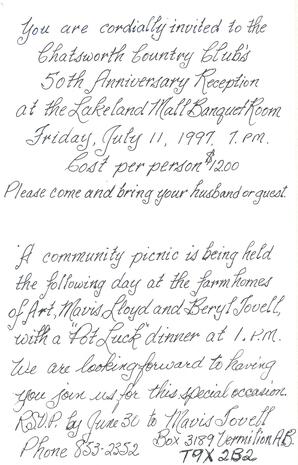 You are cordially invited to the
Chatsworth Country Club's
50th Anniversary Reception
at the Lakeland Mall Banquet Room
Friday, July 11, 1997, 7. P.M.
Cost per person $1200
Please come and bring your husband or guest.
A community picnic is being held
the following day at the farm homes
of Art, Mavis Lloyd and Beryl Tovell,
with a "Pot Luck" dinner at 1. P.M.
We are looking forward to having
you join us for this special occasion.
R.S.V.P. by June 30 to Mavis Tovell
Phone 853-2352 Box 3189 Vermilion AB.
T9X 2B2